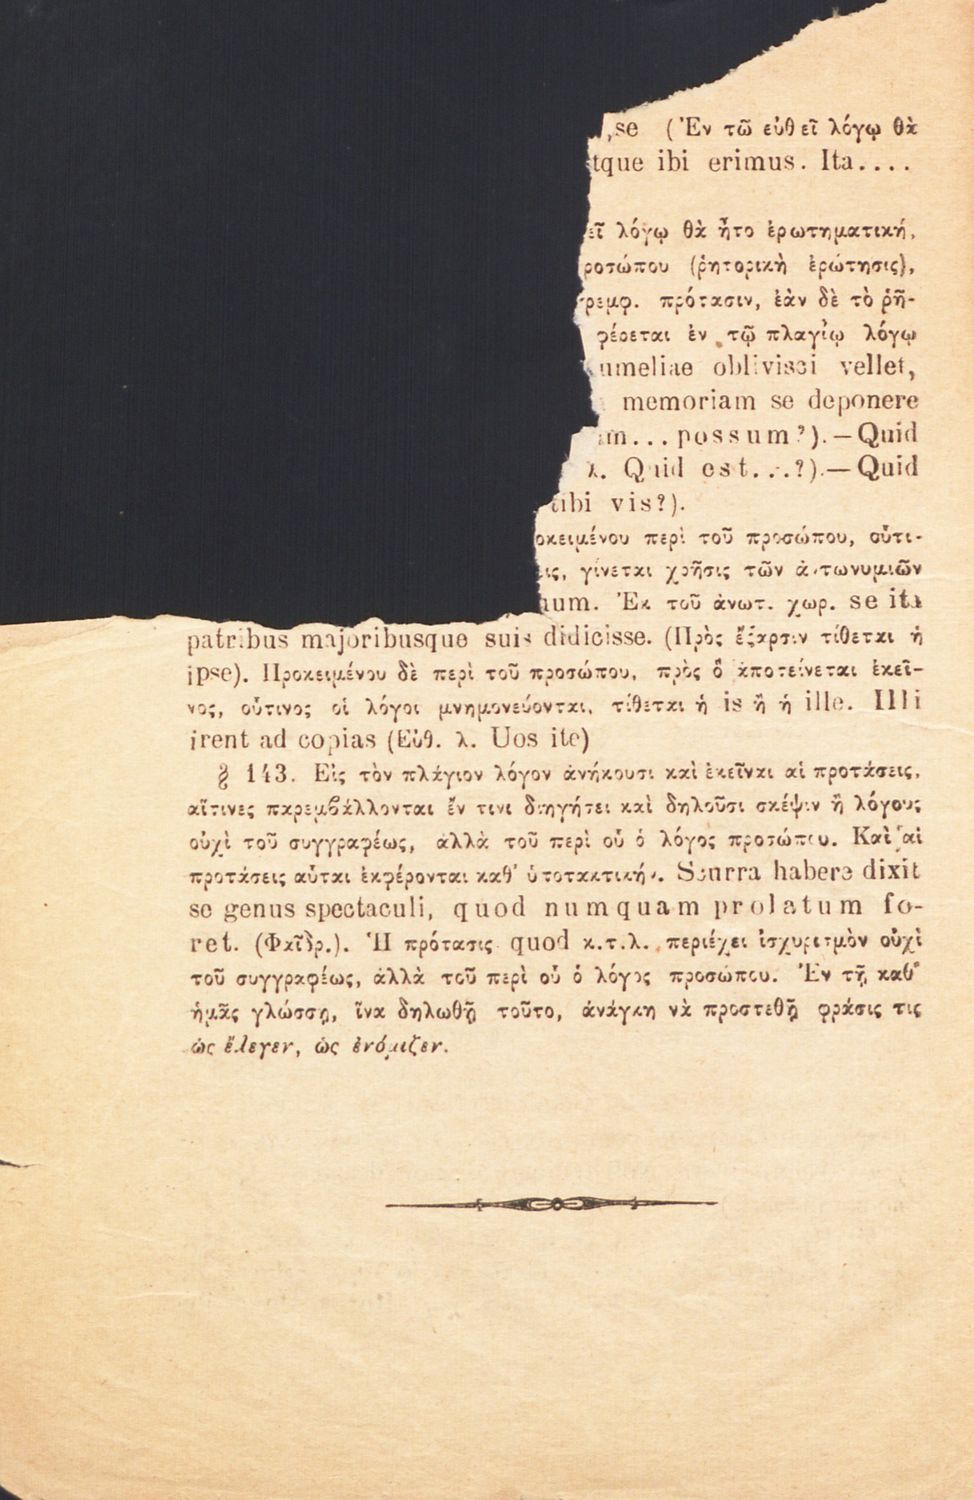 se (Ἐν τῶ εὐθεῖ λόγῳ θὰ
tque ibi erimus. Ita....
εῖ λόγῳ θὰ ἦτο ἐρωτηματική,
ροτώπου (ῥητορικὴ ἐρώτησις),
ρεμφ. πρότασιν, ἐὰν δὲ τὸ ῥῆ-
φέρεται ἐν τῷ πλαγίῳ λόγῳ
umeliae oblivisci vellet,
memoriam se deponere
am... possum?).—Quid
λ. Quid est...?).—Quid
tibi vis?).
οκειμένου περὶ τοῦ προσώπου, οὗτι-
ις, γίνεται χρῆσις τῶν ἀντωνυμιῶν
num. Ἐκ τοῦ ἀνωτ. χωρ. se ita
patribus majoribusque suis didicisse. (Πρὸς ἔξαρσιν τίθεται ἡ
ipse). Προκειμένου δὲ περὶ τοῦ προσώπου, πρὸς ὃ ἀποτείνεται ἐκεῖ-
νος, οὗτινος οἱ λόγοι μνημονεύονται, τίθεται ἡ is ἢ ἡ ille. Illi
irent ad copias (Εὐθ. λ. Uos ite)
§ 143. Εἰς τὸν πλάγιον λόγον ἀνήκουσι καὶ ἐκεῖναι αἱ προτάσεις,
αἵτινες παρεμβάλλονται ἔν τινι διηγήσει καὶ δηλοῦσι σκέψιν ἢ λόγους
οὐχὶ τοῦ συγγραφέως, ἀλλὰ τοῦ περὶ οὗ ὁ λόγος προσώπου. Καὶ αἱ
προτάσεις αὗται ἐκφέρονται καθ' ὑποτακτικήν. Scurra habere dixit
se genus spectaculi, quod numquam prolatum fo-
ret. (Φαῖδρ.). Ἡ πρότασις quod κ.τ.λ. περιέχει ἰσχυρισμὸν οὐχὶ
τοῦ συγγραφέως, ἀλλὰ τοῦ περὶ οὗ ὁ λόγος προσώπου. Ἐν τῇ καθ'
ἡμᾶς γλώσσῃ, ἵνα δηλωθῇ τοῦτο, ἀνάγκη νὰ προστεθῇ φράσις τις
ὡς ἔλεγεν, ὡς ἐνόμιζεν.